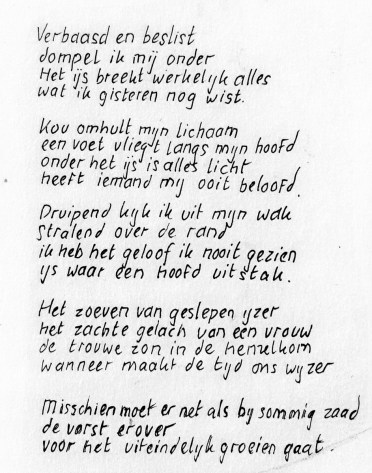 Verbaasd en beslist
dompel ik mij onder
Het ijs breekt werkelijk alles
wat ik gisteren nog wist.
Kou omhult mijn lichaam
een voet vliegt langs mijn hoofd
onder het ijs is alles licht
heeft iemand mij ooit beloofd.
Druipend kijk ik uit mijn wak
stralend over de rand
ik heb het geloof ik nooit gezien
ijs waar een hoofd uitstak.
Het zoeven van geslepen ijzer
het zachte gelach van een vrouw
de trouwe zon in de hemelkom
wanneer maakt de tijd ons wijzer
Misschien moet er net als bij sommig zaad
de vorst erover
voor het uiteindelijk groeien gaat.